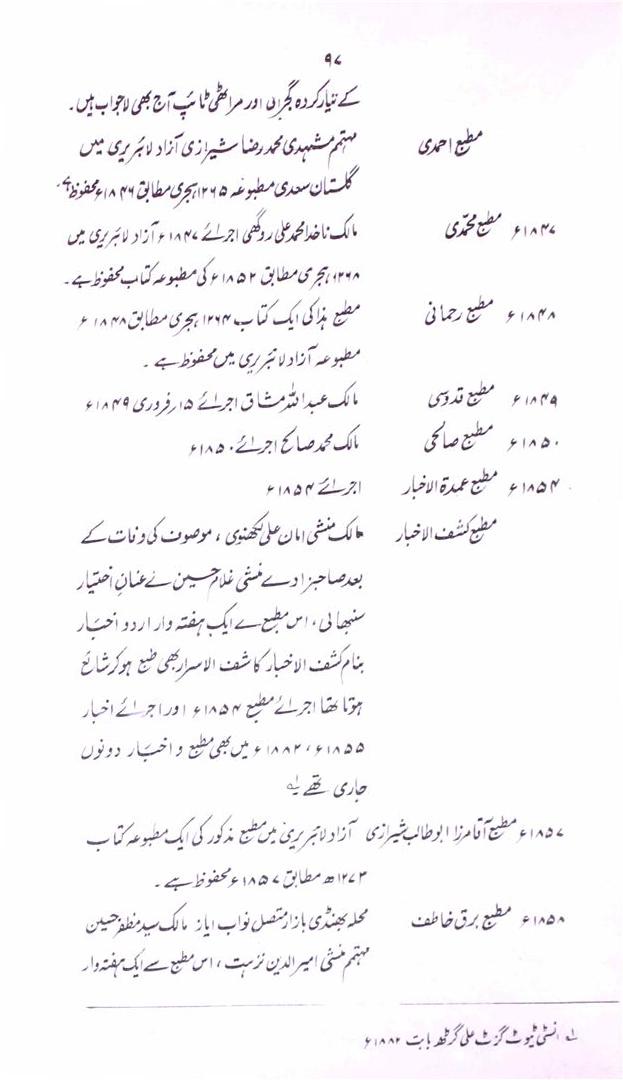 ۹۷
کے تیار کردہ گجراتی اور مراٹھی ٹائپ آج بھی لاجواب ہیں۔
مطبع احمدی مہتمم مشہدی محمد رضا شیرازی آزاد لائبریری میں
گلستان سعدی مطبوعہ ۱۲۶۵ ہجری مطابق ۱۸۴۶ء محفوظ ہے۔
۱۸۴۷ء مطبع محمدی مالک ناخدا محمد علی روگھی اجرائے ۱۸۴۷ء آزاد لائبریری میں
۱۲۶۸ ہجری مطابق ۱۸۵۲ء کی مطبوعہ کتاب محفوظ ہے۔
۱۸۴۸ء مطبع رحمانی مطبع ہذا کی ایک کتاب ۱۲۶۴ ہجری مطابق ۱۸۴۸ء
مطبوعہ آزاد لائبریری میں محفوظ ہے۔
۱۸۴۹ء مطبع قدوسی مالک عبد اللہ مشاق اجرائے ۱۵ر فروری ۱۸۴۹ء
۱۸۵۰ء مطبع صالحی مالک محمد صالح اجرائے ۱۸۵۰ء
۱۸۵۴ء مطبع عمدۃ الاخبار اجرائے ۱۸۵۴ء
مطبع کشف الاخبار مالک منشی امان علی لکھنوی، موصوف کی وفات کے
بعد صاحبزادے منشی غلام حسین نے عنانِ اختیار
سنبھالی، اس مطبع سے ایک ہفتہ وار اردو اخبار
بنام کشف الاخبار کاشف الاسرار بھی طبع ہوکر شائع
ہوتا تھا اجرائے مطبع ۱۸۵۴ء اور اجرائے اخبار
۱۸۵۵ء، ۱۸۸۲ء میں بھی مطبع و اخبار دونوں
جاری تھے۔ ۱؎
۱۸۵۷ء مطبع آقا مرزا ابو طالب شیرازی آزاد لائبریری میں مطبع مذکور کی ایک مطبوعہ کتاب
۱۲۷۳ھ مطابق ۱۸۵۷ء محفوظ ہے۔
۱۸۵۸ء مطبع برق خاطف محلہ بھنڈی بازار متصل نواب ایاز مالک سید مظفر حسین
مہتمم منشی امیر الدین نزہت، اس مطبع سے ایک ہفتہ وار
۱؎ انسٹی ٹیوٹ گزٹ علی گڑھ بابت ۱۸۸۲ء